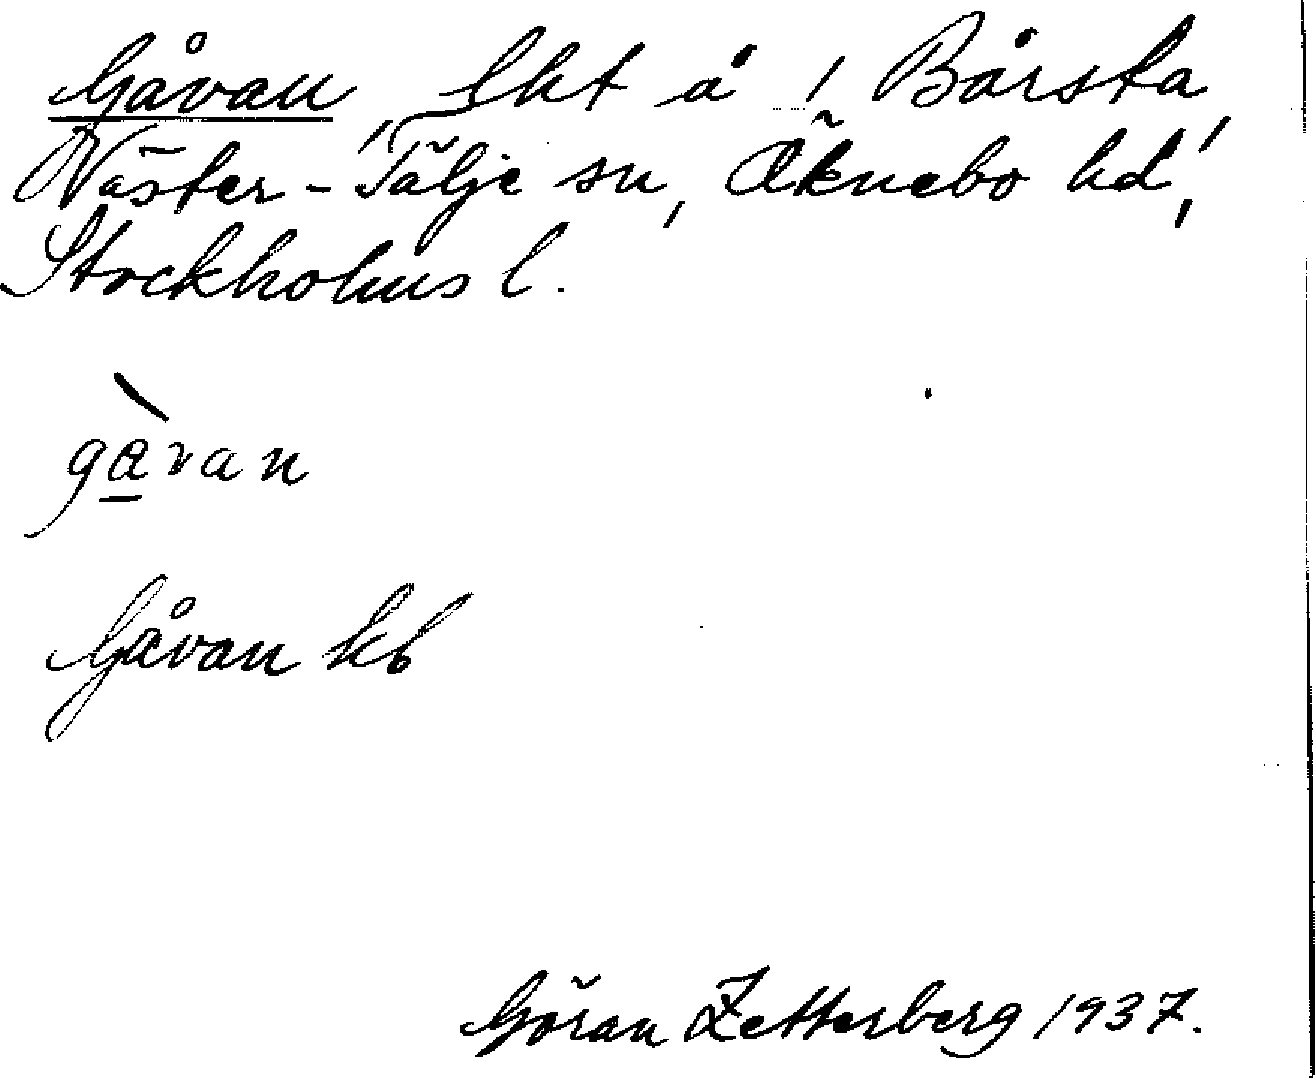 Gåvan, lht å i Bårsta,
Väster-Tälje sn, Öknebo hd,
Stockholms l.
gàvan
Gåvan kb
Göran Zetterberg 1937.